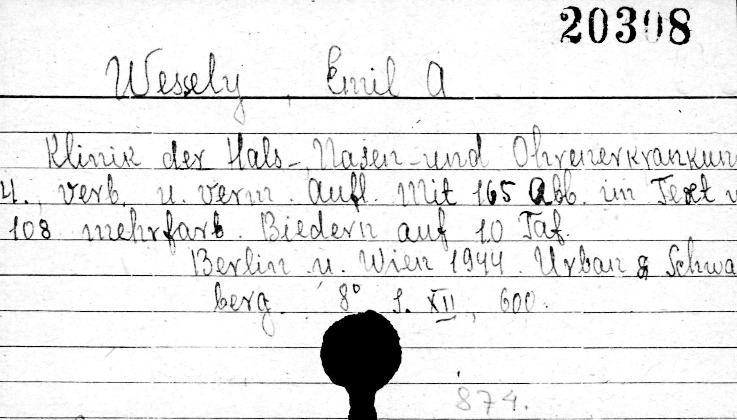 20308
Wesely, Emil A
Klinik der Hals-, Nasen- und Ohrenerkrankun
4. verb. u. verm. Aufl. Mit 165 Abb. im Text u
108 mehrfarb. Biedern auf 10 Taf.
Berlin u. Wien 1944. Urban & Schwa
berg. 8° S. XII, 600.
874.